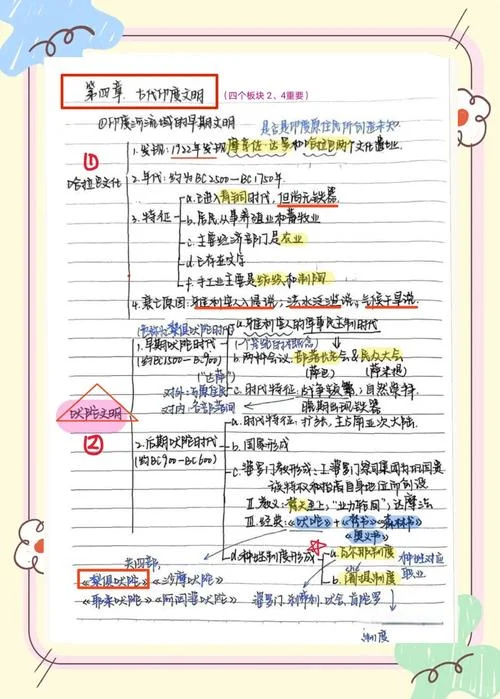 第四章. 古代印度文明
(四个板块 2、4重要)
①印度河流域的早期文明
是否是印度原住民所创造未知
①
哈拉巴文化
1. 发现: 1922年发现摩亨佐·达罗和哈拉巴两个文化遗址.
2. 年代: 约为BC2500—BC1750年.
3. 特征
a. 已进入青铜时代, 但尚无铁器
b. 居民从事养殖业和畜牧业
c. 主要经济部门是农业
d. 已存在文字
f. 手工业主要是纺织和制陶
4. 衰亡原因: 雅利安人入侵说; 洪水泛滥说; 气候干旱说.
(也称: 梨俱吠陀时代)
吠陀文明
②
1. 早期吠陀时代
(约BC1500—BC900)
("达萨")
a. 雅利安人的军事民主制时代
b. 两种会议: 部落长老会 & 民众大会
(萨巴) (萨米提)
对外: 与原住民
对内: 各部落间
c. 时代特征: 战争频繁; 自然崇拜
晚期出现铁器
2. 后期吠陀时代
(约BC900—BC600)
a. 时代特征: 扩张, 主占南亚次大陆.
b. 国家形成
c. 婆罗门教形成: I. 婆罗门祭司集团为巩固其
该特权和抬高自身地位所创设
II. 教义: 梵天至上; "业力轮回"; 达摩法
III. 经典: 《吠陀》+《梵书》《森林书》
《奥义书》
d. 种姓制度形成
a. 瓦尔那制度
b. 阇提制度
种姓对应
职业
共四部:
《梨俱吠陀》《沙摩吠陀》
《耶柔吠陀》《阿闼婆吠陀》
婆罗门、刹帝利、吠舍、首陀罗
制度